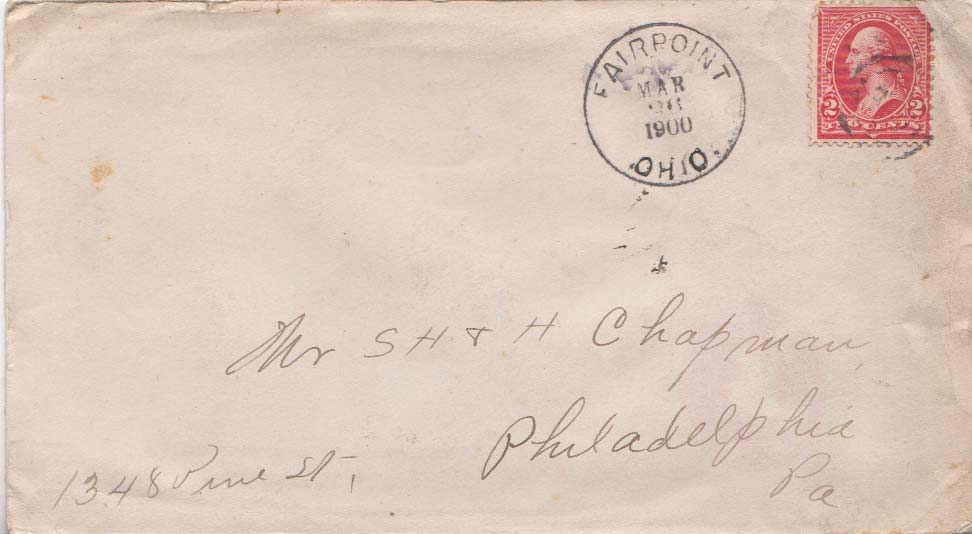 FAIRPOINT
MAR
26
1900
OHIO
UNITED STATES POSTAGE
2 2
TWO CENTS
Mr S H & H Chapman,
Philadelphia
Pa
1348 Pine St,